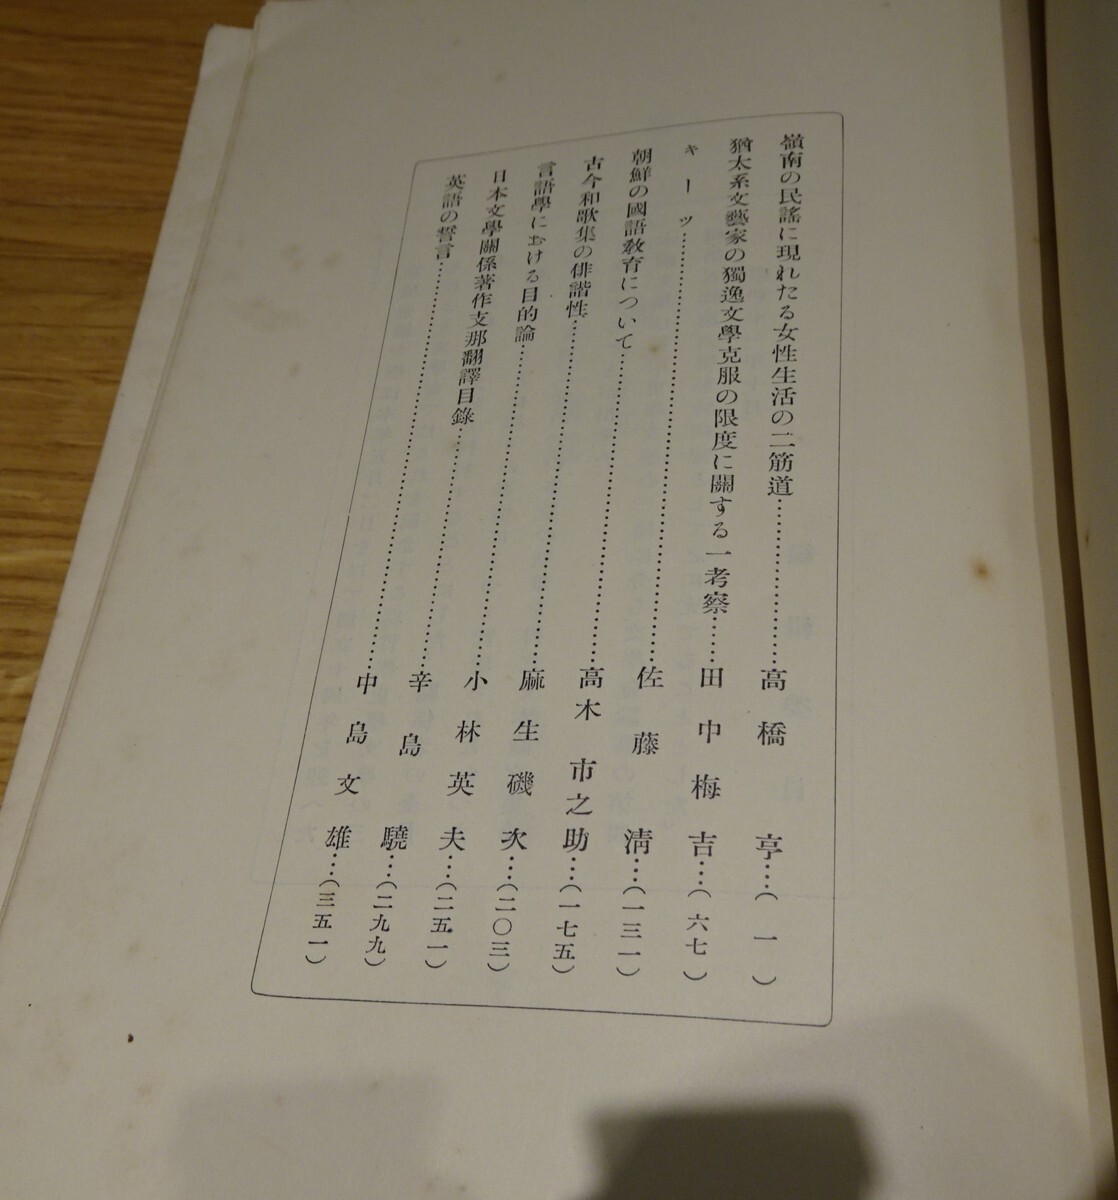 嶺南の民謠に現れたる女性生活の二筋道……………高橋亨…(一)
猶太系文藝家の獨逸文學克服の限度に關する一考察……田中梅吉…(六七)
キーツ……………………………………佐藤清…(一三一)
朝鮮の國語教育について…………………………高木市之助…(一七五)
古今和歌集の俳諧性……………………………麻生磯次…(二〇三)
言語學における目的論…………………………小林英夫…(二五一)
日本文學關係著作支那翻譯目錄……………………辛島驍…(二九九)
英語の誓言……………………………………中島文雄…(三五一)